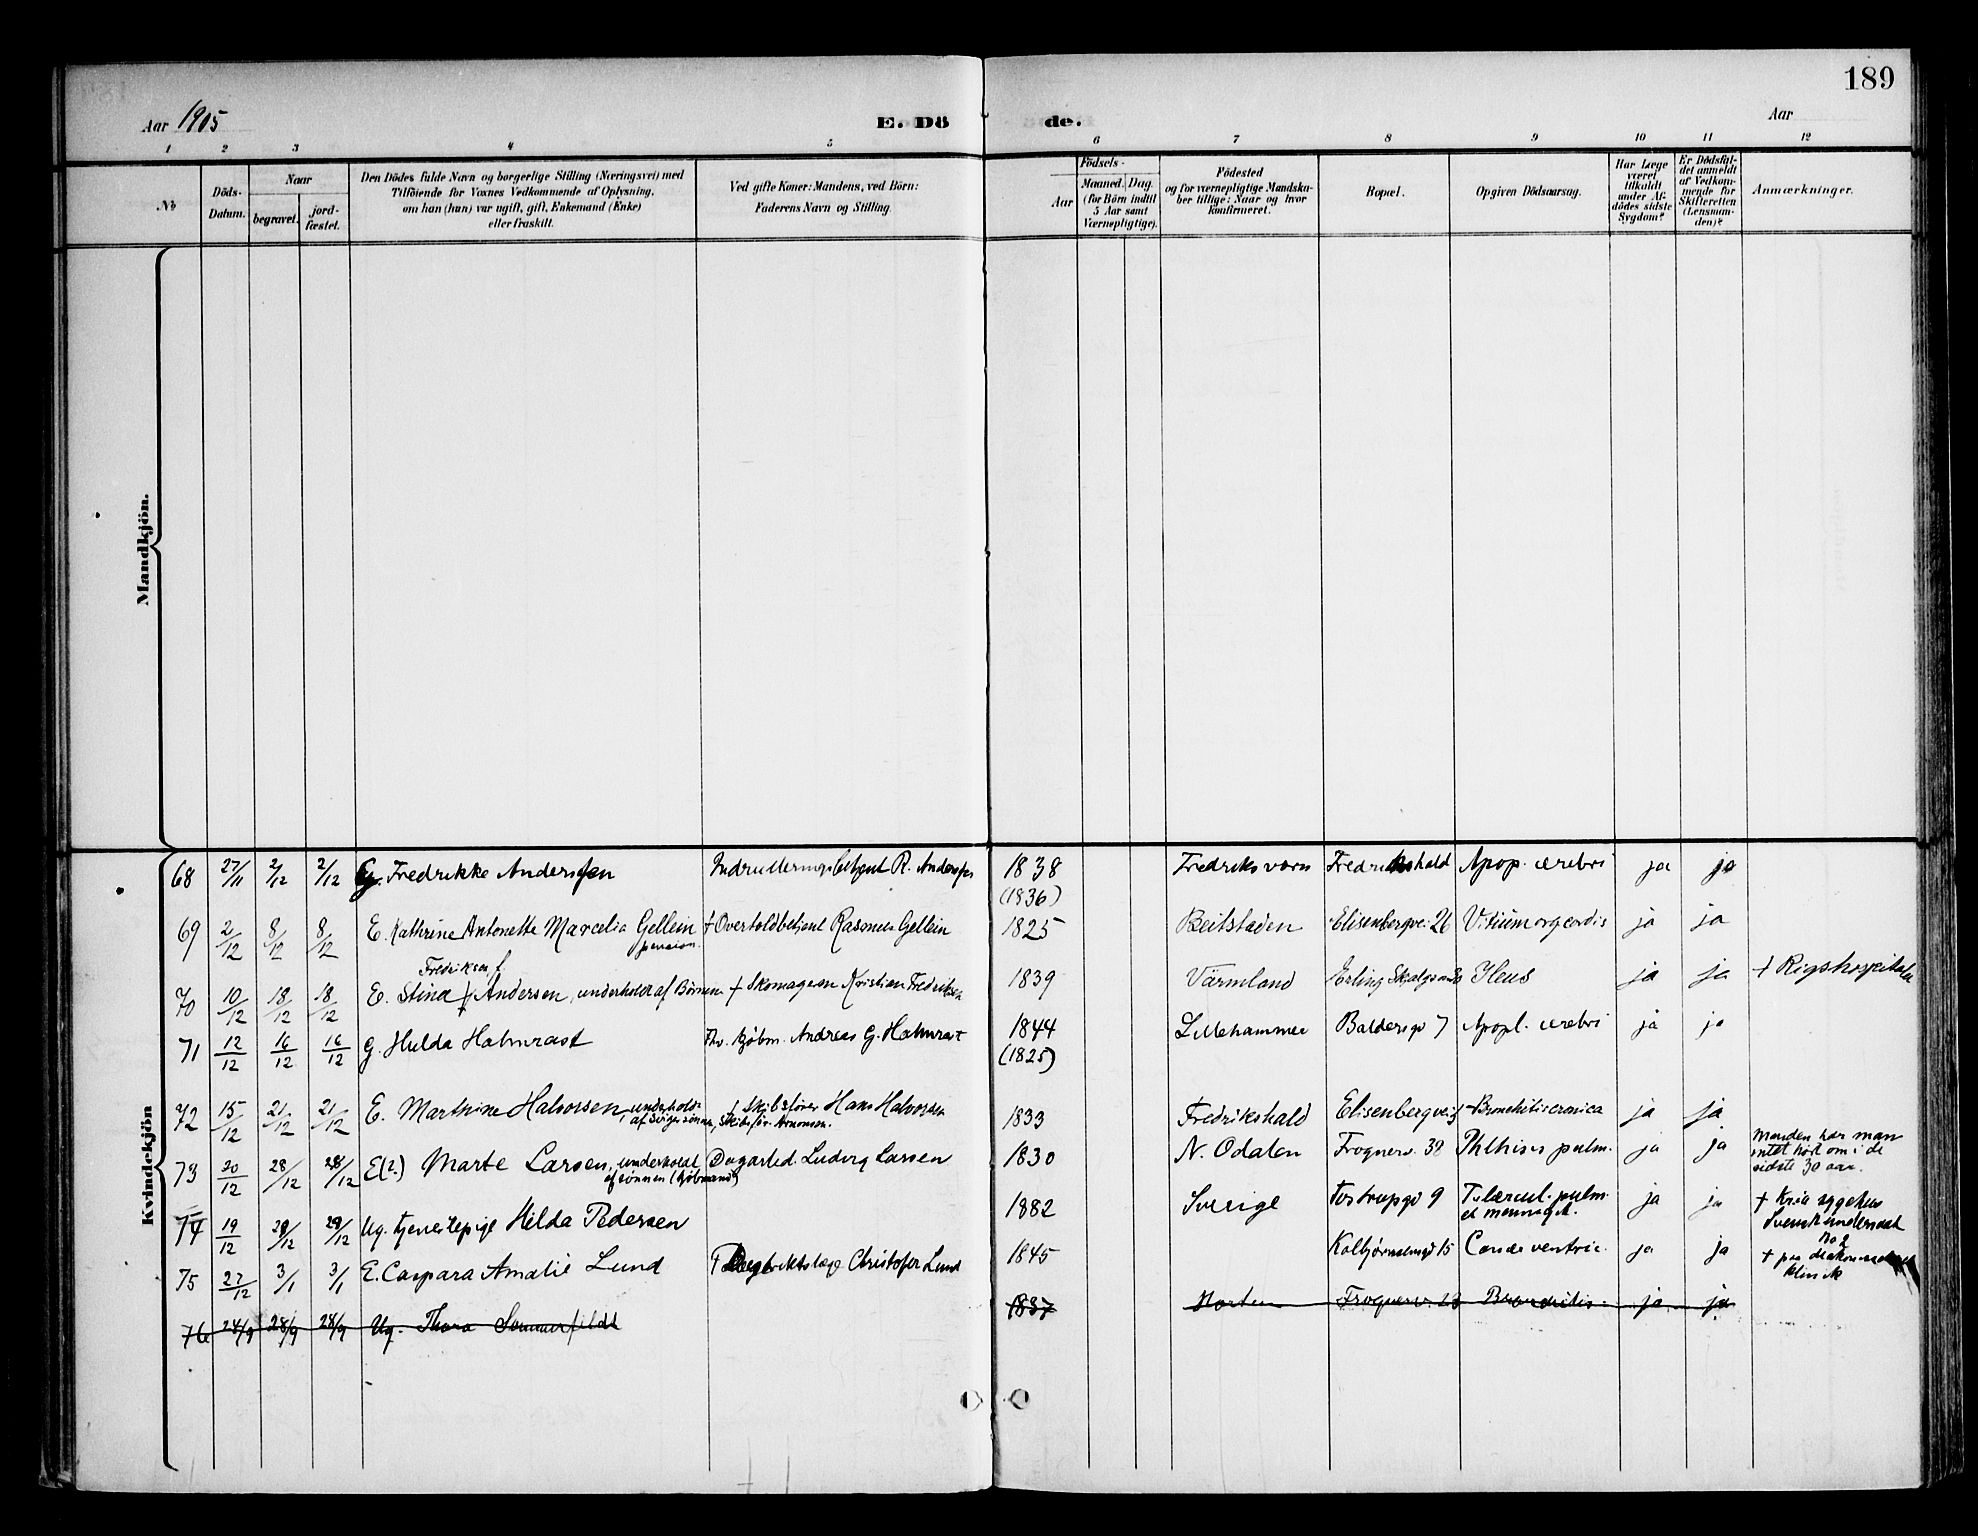 189
Aar 1905 E. Dö de. Aar
1 2 3 4 5 6 7 8 9 10 11 12
№
Döds-Datum.
Naar
begravet.
jord-fæstet.
Den Dödes fulde Navn og borgerlige Stilling (Næringsvei) med
Tilföiende for Voxnes Vedkommende af Oplysning,
om han (hun) var ugift, gift, Enkemand (Enke)
eller fraskilt.
Ved gifte Koner: Mandens, ved Börn:
Faderens Navn og Stilling
Födsels-
Aar
Maaned. Dag.
(for Börn indtil
5 Aar samt
Værnepligtige).
Födested
og for værnepligtige Mandska-
ber tillige: Naar og hvor
konfirmeret.
Bopæl.
Opgiven Dödsaarsag.
Har Læge
været
tilkaldt
under Af-
dödes sidste
Sygdom?
Er Dödsfal-
det anmeldt
af Vedkom-
mende for
Skifteretten
(Lensman-
den)?
Anmærkninger.
Mandkjön.
Kvindekjön
68 27/11 2/12 2/12 G. Fredrikke Anderssen R. Anderssen 1838 Fredriksværn Fredrikshald Apop. cerebri ja ja
(1836)
69 2/12 8/12 8/12 E. Kathrine Antonette Marcelia Gellein † Overtoldbetjent Rasmus Gellein 1825 Beitstaden Elisenbergvei 26 Vitium org cordis ja ja
pension.
Fredriksen f.
70 10/12 18/12 18/12 E. Stina Andersen, underholdt af Børnene † Skomager Kristian Fredriksen 1839 Värmland Erling Skjalgsøns Ileus ja ja † Rigshospitalet
71 12/12 16/12 16/12 G. Hulda Holmrast Fhv. kjøbm. Andreas G. Holmrast 1844 Lillehammer Baldersgd 7 Apopl. cerebri ja ja
(1825)
72 15/12 21/12 21/12 E. Marthine Halvorsen, underholdt † Skibsfører Hans Halvorsen 1833 Fredrikshald Elisenbergvei Bronchitis cronica ja ja
af svigersønnen, Skibsfør. Aronsen.
73 20/12 28/12 28/12 E(?) Marte Larsen, underholdt Dagarbed. Ludvig Larsen 1830 N. Odalen Frognerv. 39 Phthisis pulm. ja ja Manden har man
af sønnen (kjøbmand) intet hørt om i de
sidste 30 aar.
74 19/12 29/12 29/12 Ug. tjenestepige Hilda Pedersen 1882 Sverige Tostrupgd 9 Tubercul. pulm. ja ja † Kria sygehus
et mening. Svensk undersaat
75 27/12 3/1 3/1 E. Caspara Amalie Lund † Distriktslæge Christofer Lund 1845 Kolbjørnsensgd 15 Cancer ventric. ja ja † paa diakonisse
klinik
76 24/9 28/9 28/9 Ug. Thora Sommerfeldt 1837 Horten Frognerv. 23 Bronchitis ja ja